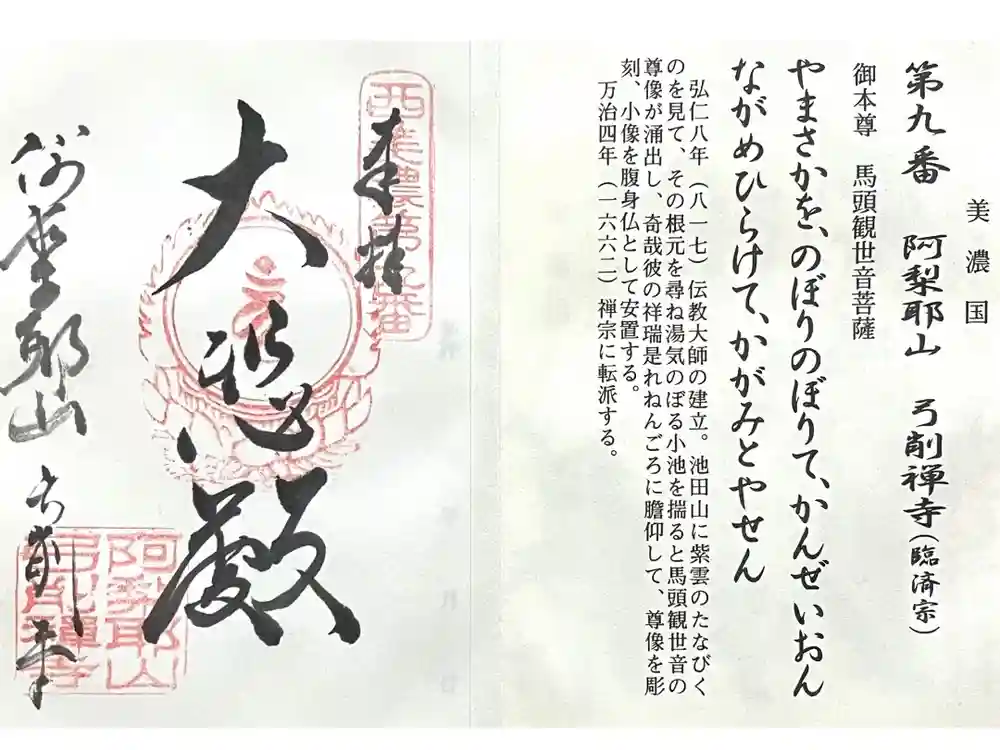 美濃国
第九番 阿梨耶山 弓削禅寺(臨済宗)
御本尊 馬頭観世音菩薩
やまさかを、のぼりのぼりて、かんぜいおん
ながめひらけて、かがみとやせん
弘仁八年(八一七)伝教大師の建立。池田山に紫雲のたなびく
のを見て、その根元を尋ね湯気のぼる小池を揣ると馬頭観世音の
尊像が涌出し、奇哉彼の祥瑞是れねんごろに膽仰して、尊像を彫
刻、小像を腹身仏として安置する。
万治四年(一六六二)禅宗に転派する。
西美濃第九番
奉拝
大悲殿
阿梨耶山
弓削禅寺
阿梨耶山
弓削禅寺